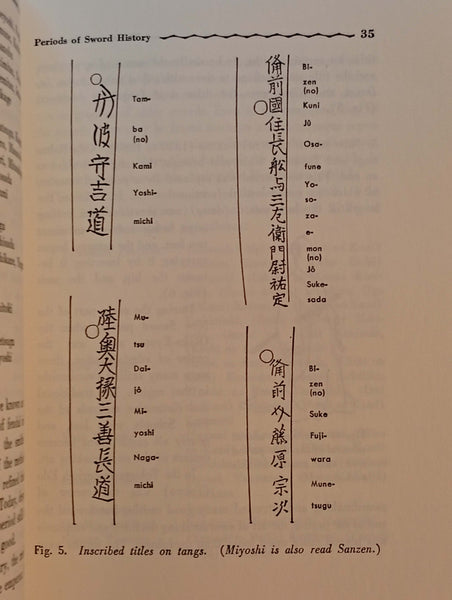 Periods of Sword History 35
丹波守吉道
Tam-
ba
(no)
Kami
Yoshi-
michi
備前國住長船与三左衛門尉祐定
Bi-
zen
(no)
Kuni
Jū
Osa-
fune
Yo-
so-
za-
e-
mon
(no)
Jō
Suke-
sada
陸奥大掾三善長道
Mu-
tsu
Dai-
jō
Mi-
yoshi
Naga-
michi
備前介藤原宗次
Bi-
zen
(no)
Suke
Fuji-
wara
Mune-
tsugu
Fig. 5. Inscribed titles on tangs. (Miyoshi is also read Sanzen.)